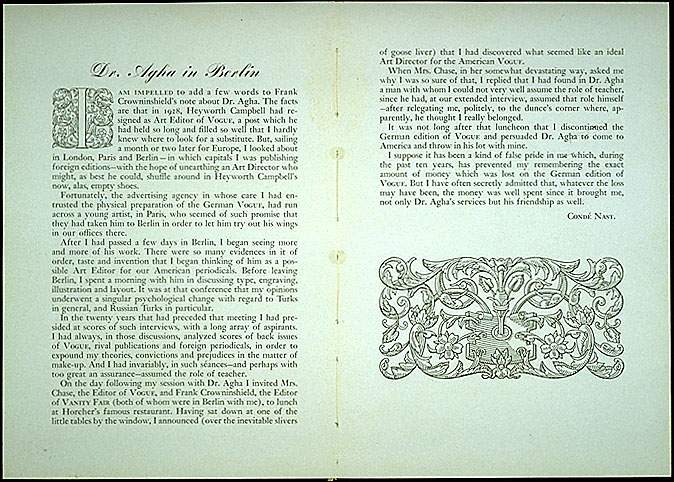 Dr. Agha in Berlin
I AM IMPELLED to add a few words to Frank
Crowninshield's note about Dr. Agha. The facts
are that in 1928, Heyworth Campbell had re-
signed as Art Editor of VOGUE, a post which he
had held so long and filled so well that I hardly
knew where to look for a substitute. But, sailing
a month or two later for Europe, I looked about
in London, Paris and Berlin—in which capitals I was publishing
foreign editions—with the hope of unearthing an Art Director who
might, as best he could, shuffle around in Heyworth Campbell's
now, alas, empty shoes.
Fortunately, the advertising agency in whose care I had en-
trusted the physical preparation of the German VOGUE, had run
across a young artist, in Paris, who seemed of such promise that
they had taken him to Berlin in order to let him try out his wings
in our offices there.
After I had passed a few days in Berlin, I began seeing more
and more of his work. There were so many evidences in it of
order, taste and invention that I began thinking of him as a pos-
sible Art Editor for our American periodicals. Before leaving
Berlin, I spent a morning with him in discussing type, engraving,
illustration and layout. It was at that conference that my opinions
underwent a singular psychological change with regard to Turks
in general, and Russian Turks in particular.
In the twenty years that had preceded that meeting I had pre-
sided at scores of such interviews, with a long array of aspirants.
I had always, in those discussions, analyzed scores of back issues
of VOGUE, rival publications and foreign periodicals, in order to
expound my theories, convictions and prejudices in the matter of
make-up. And I had invariably, in such séances—and perhaps with
too great an assurance—assumed the role of teacher.
On the day following my session with Dr. Agha I invited Mrs.
Chase, the Editor of VOGUE, and Frank Crowninshield, the Editor
of VANITY FAIR (both of whom were in Berlin with me), to lunch
at Horcher's famous restaurant. Having sat down at one of the
little tables by the window, I announced (over the inevitable slivers
of goose liver) that I had discovered what seemed like an ideal
Art Director for the American VOGUE.
When Mrs. Chase, in her somewhat devastating way, asked me
why I was so sure of that, I replied that I had found in Dr. Agha
a man with whom I could not very well assume the role of teacher,
since he had, at our extended interview, assumed that role himself
—after relegating me, politely, to the dunce's corner where, ap-
parently, he thought I really belonged.
It was not long after that luncheon that I discontinued the
German edition of VOGUE and persuaded Dr. Agha to come to
America and throw in his lot with mine.
I suppose it has been a kind of false pride in me which, during
the past ten years, has prevented my remembering the exact
amount of money which was lost on the German edition of
VOGUE. But I have often secretly admitted that, whatever the loss
may have been, the money was well spent since it brought me,
not only Dr. Agha's services but his friendship as well.
CONDÉ NAST.